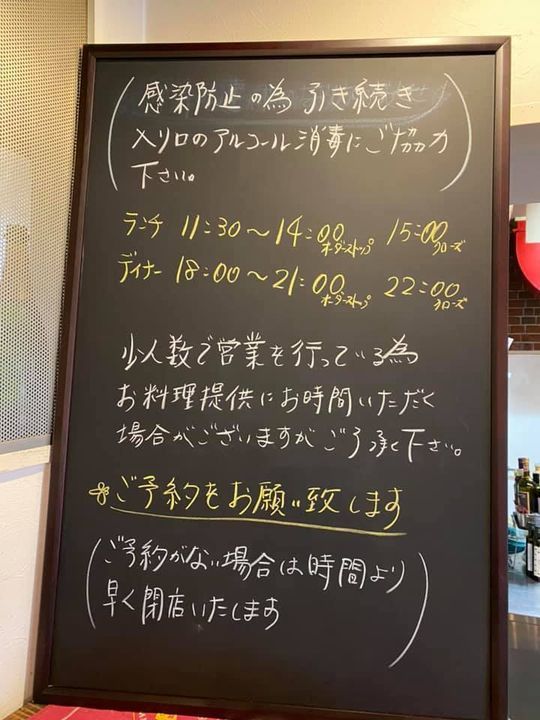 感染防止の為 引き続き
入り口のアルコール消毒にご協力
下さい。
ランチ 11:30～14:00 オーダーストップ 15:00 クローズ
ディナー 18:00～21:00 オーダーストップ 22:00 クローズ
少人数で営業を行っている為
お料理提供にお時間いただく
場合がございますが ご了承下さい。
ご予約をお願い致します
(ご予約がない場合は時間より
早く閉店いたします)